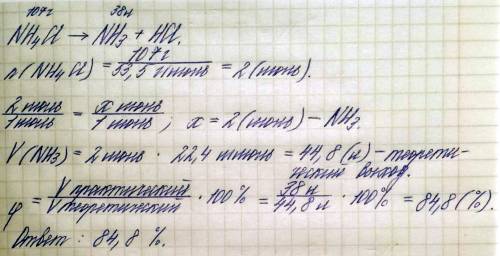 107г 38л
NH₄Cl → NH₃ + HCl.
n(NH₄Cl) = 107г / 53,5 г/моль = 2 (моль).
2 моль / 1 моль = x моль / 1 моль ; x = 2 (моль) – NH₃.
V(NH₃) = 2 моль · 22,4 л/моль = 44,8 (л) – теорети-
ческий выход.
φ = V практический / V теоретический · 100% = 38 л / 44,8 л · 100% = 84,8 (%).
Ответ: 84,8 %.